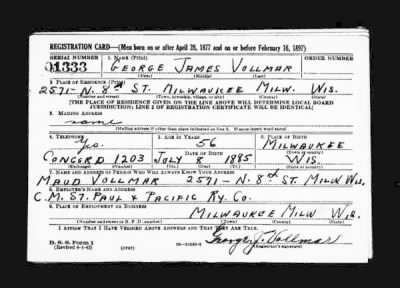 REGISTRATION CARD—(Men born on or after April 28, 1877 and on or before February 16, 1897)
SERIAL NUMBER 1. NAME (Print) ORDER NUMBER
1333 GEORGE JAMES VOLLMAR
(First) (Middle) (Last)
2. PLACE OF RESIDENCE (Print)
2571-N. 8th ST. MILWAUKEE MILW. WIS.
(Number and street) (Town, township, village, or city) (County) (State)
[THE PLACE OF RESIDENCE GIVEN ON THE LINE ABOVE WILL DETERMINE LOCAL BOARD
JURISDICTION; LINE 2 OF REGISTRATION CERTIFICATE WILL BE IDENTICAL]
3. MAILING ADDRESS
same
[Mailing address if other than place indicated on line 2. If same insert word same]
4. TELEPHONE 5. AGE IN YEARS 6. PLACE OF BIRTH
56 MILWAUKEE
DATE OF BIRTH (Town or county)
CONCORD 1203 JULY 8 1885 WIS.
(Exchange) (Number) (Mo.) (Day) (Yr.) (State or country)
7. NAME AND ADDRESS OF PERSON WHO WILL ALWAYS KNOW YOUR ADDRESS
MAUD VOLLMAR 2571-N. 8th ST. MILW WIS.
8. EMPLOYER'S NAME AND ADDRESS
C.M. ST. PAUL & PACIFIC RY. CO.
9. PLACE OF EMPLOYMENT OR BUSINESS
MILWAUKEE MILW WIS.
(Number and street or R. F. D. number) (Town) (County) (State)
I AFFIRM THAT I HAVE VERIFIED ABOVE ANSWERS AND THAT THEY ARE TRUE.
D. S. S. Form 1
(Revised 4-1-42) (over) George J. Vollmar
(Registrant's signature)